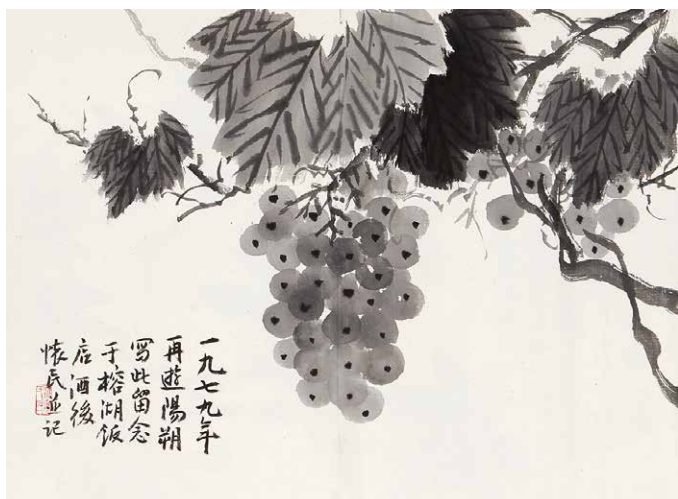 一九七九年
再遊陽朔
寫此留念
于榕湖飯
店酒後
懷民並记